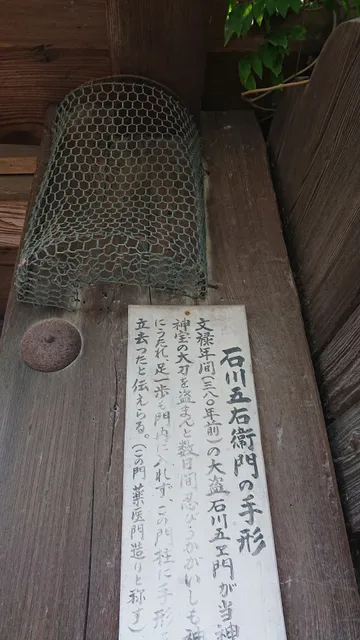 石川五右衛門の手形
文禄年間(三八〇年前)の大盗石川五ヱ門が当神
神宝の大刀を盗まんと数日間忍びうかがいしも神
にうたれ足一歩も門内に入れず、この門柱に手形
立去ったと伝えらる。(この門 薬医門造りと称す)